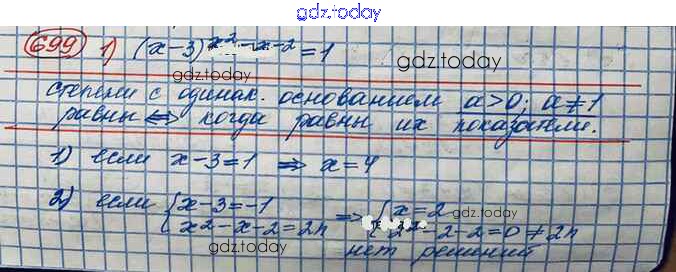 gdz.today
699 1) (x-3)^{x²-x-2} = 1 gdz.today
gdz.today
степени с одинак. основанием a>0; a≠1
равны ⇔ когда равны их показатели.
1) если x-3=1 ⇒ x=4
2) если { x-3=-1 ⇒ { x=2 gdz.today
x²-x-2=2n 2²-2-2=0≠2n
gdz.today нет решений